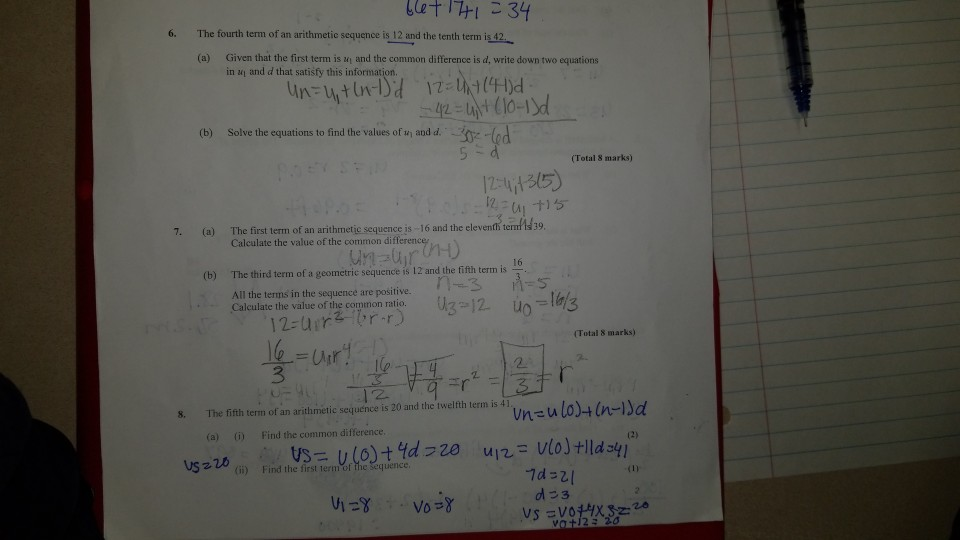 66+17+1 = 34
6. The fourth term of an arithmetic sequence is 12 and the tenth term is 42.
(a) Given that the first term is u₁ and the common difference is d, write down two equations
in u₁ and d that satisfy this information.
Un=U₁+(n-1)d 12=U₁+(4-1)d
-42=U₁+(10-1)d
(b) Solve the equations to find the values of u₁ and d. -30=-6d
5=d
(Total 8 marks)
12=U₁+3(5)
12=U₁+15
-3=U₁
7. (a) The first term of an arithmetic sequence is -16 and the eleventh term is 39.
Calculate the value of the common difference.
Un=U₁r(n-1)
(b) The third term of a geometric sequence is 12 and the fifth term is 16/3.
n=3 n=5
All the terms in the sequence are positive.
Calculate the value of the common ratio. U3=12 U0=16/3
12=U₁r²
(Total 8 marks)
16/3=U₁r⁴
16/3 / 12 √4/9 =r² = 2/3 = r
8. The fifth term of an arithmetic sequence is 20 and the twelfth term is 41.
Un=u(0)+(n-1)d
(a) (i) Find the common difference. (2)
U5=20 U5= U(0)+4d=20 U12= U(0)+11d=41
(ii) Find the first term of the sequence. (1)
7d=21
d=3
U1=8 U0=8
U5=U0+4x3=20
U0+12=20